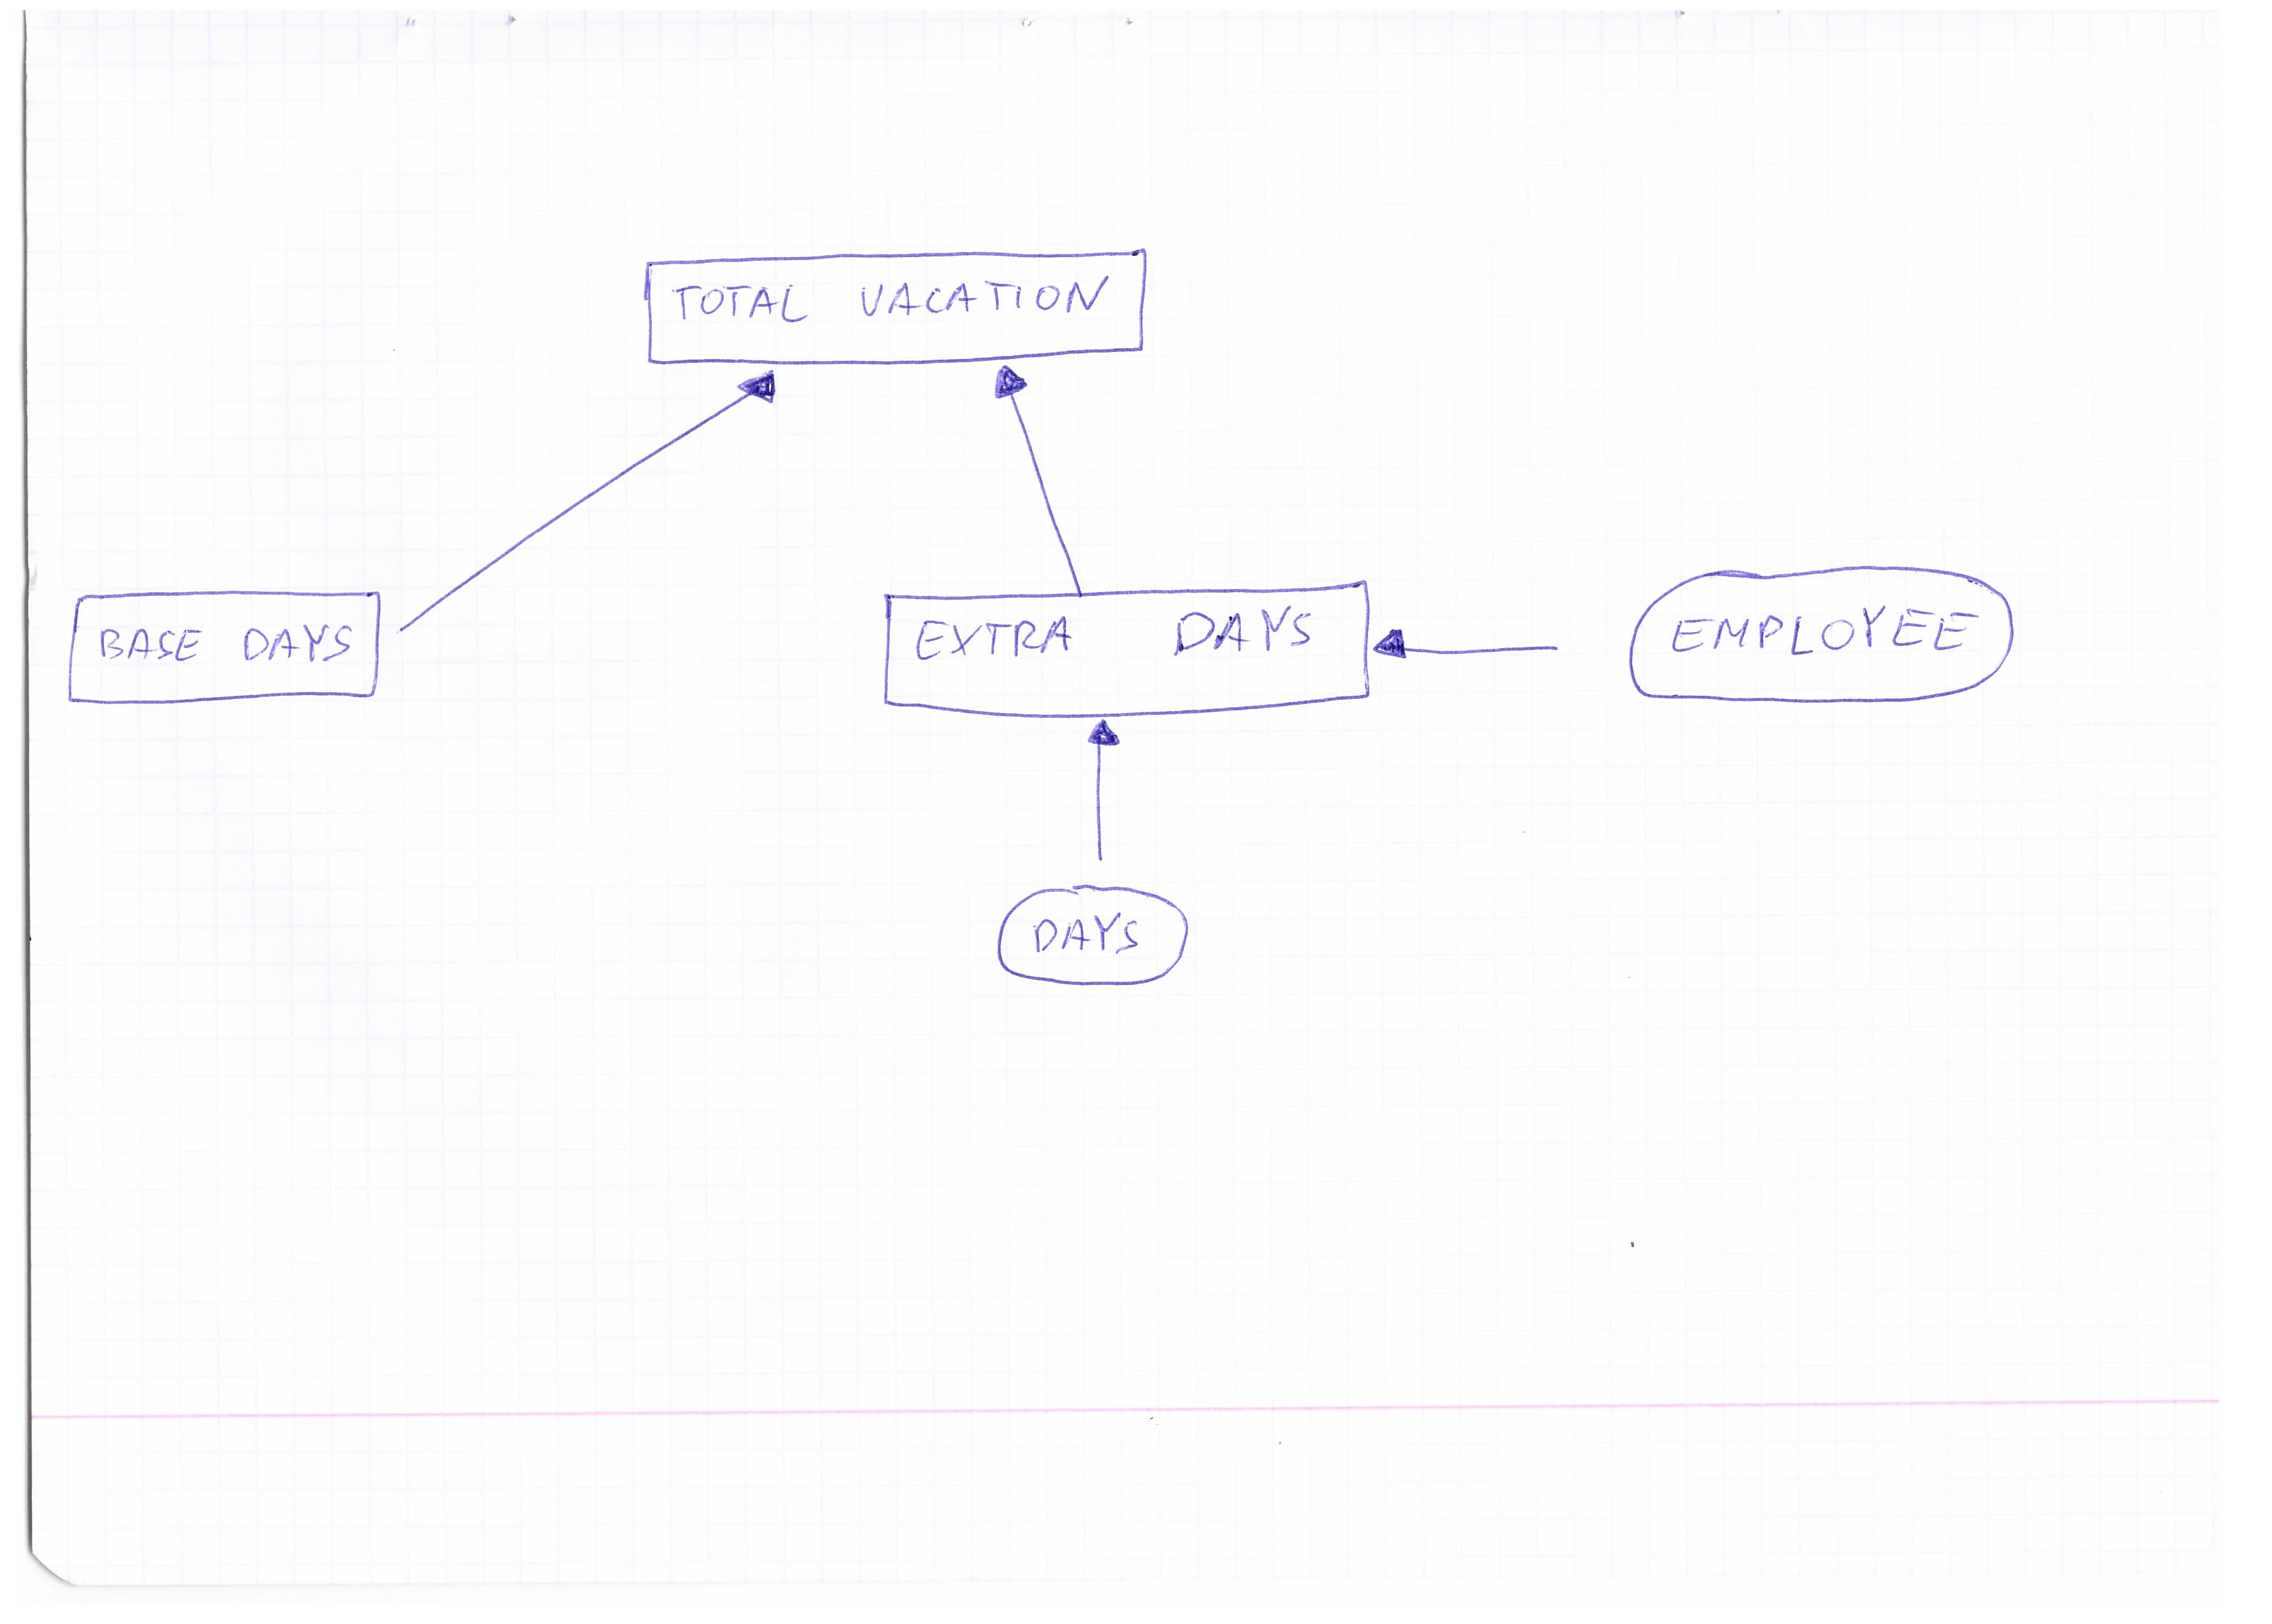 TOTAL VACATION
BASE DAYS
EXTRA DAYS
EMPLOYEE
DAYS